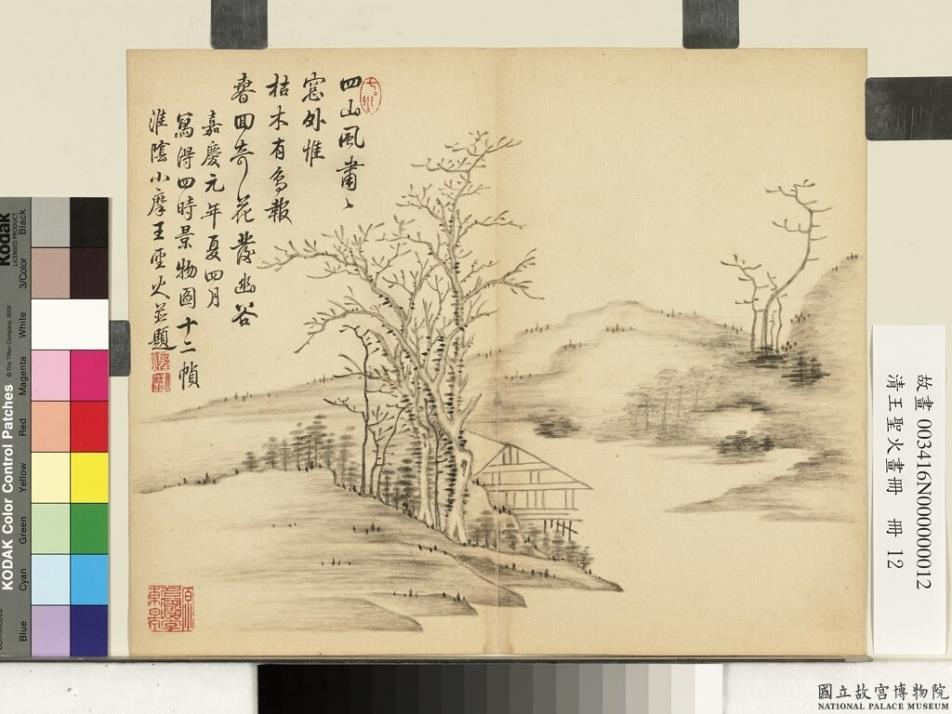 四山風肅〻
窓外惟
枯木有鳥報
春回奇花發幽谷
嘉慶元年夏四月
寫得四時景物圖十二幀
淮陰小摩王聖火並題
故畫 003416N000000012
清王聖火畫冊 冊 12
Kodak
KODAK Color Control Patches
© The Tiffen Company, 2000
Black
3/Color
White
Magenta
Red
Yellow
Green
Cyan
Blue
國立故宮博物院
NATIONAL PALACE MUSEUM